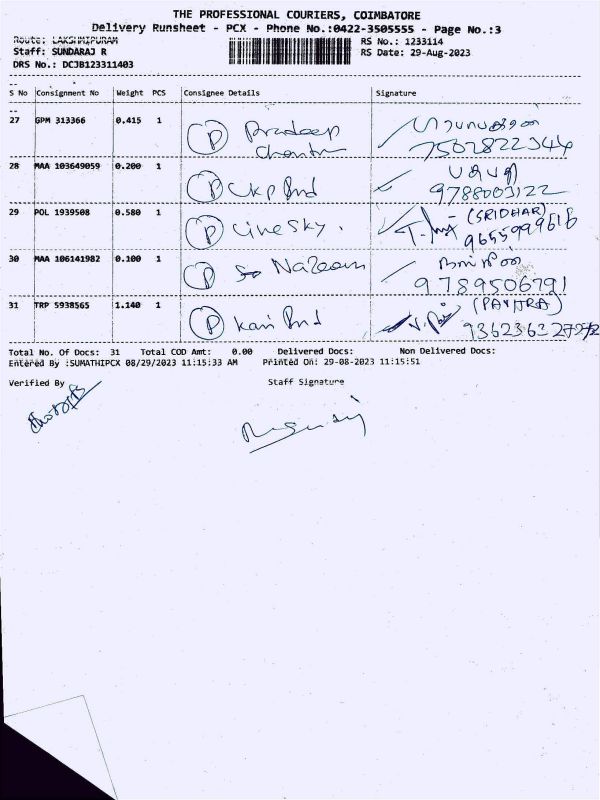 THE PROFESSIONAL COURIERS, COIMBATORE
Delivery Runsheet - PCX - Phone No.:0422-3505555 - Page No.:3
Route: LAKSHMIPURAM
RS No.: 1233114
Staff: SUNDARAJ R
RS Date: 29-Aug-2023
DRS No.: DCJB123311403
S No Consignment No Weight PCS Consignee Details Signature
27 GPM 313366 0.415 1 P Pradeep
7502822344
28 MAA 103649059 0.200 1 P CKP Ind
9788003122
29 POL 1939508 0.580 1 P Cinesky. (SRIDHAR)
9655999618
30 MAA 106141982 0.100 1 P Nazeem
9789506791
31 TRP 5938565 1.140 1 P Kavi Ind (PAVITRA)
Total No. Of Docs: 31 Total COD Amt: 0.00 Delivered Docs: Non Delivered Docs:
Entered By :SUMATHIPCX 08/29/2023 11:15:33 AM Printed On: 29-08-2023 11:15:51
Verified By Staff Signature